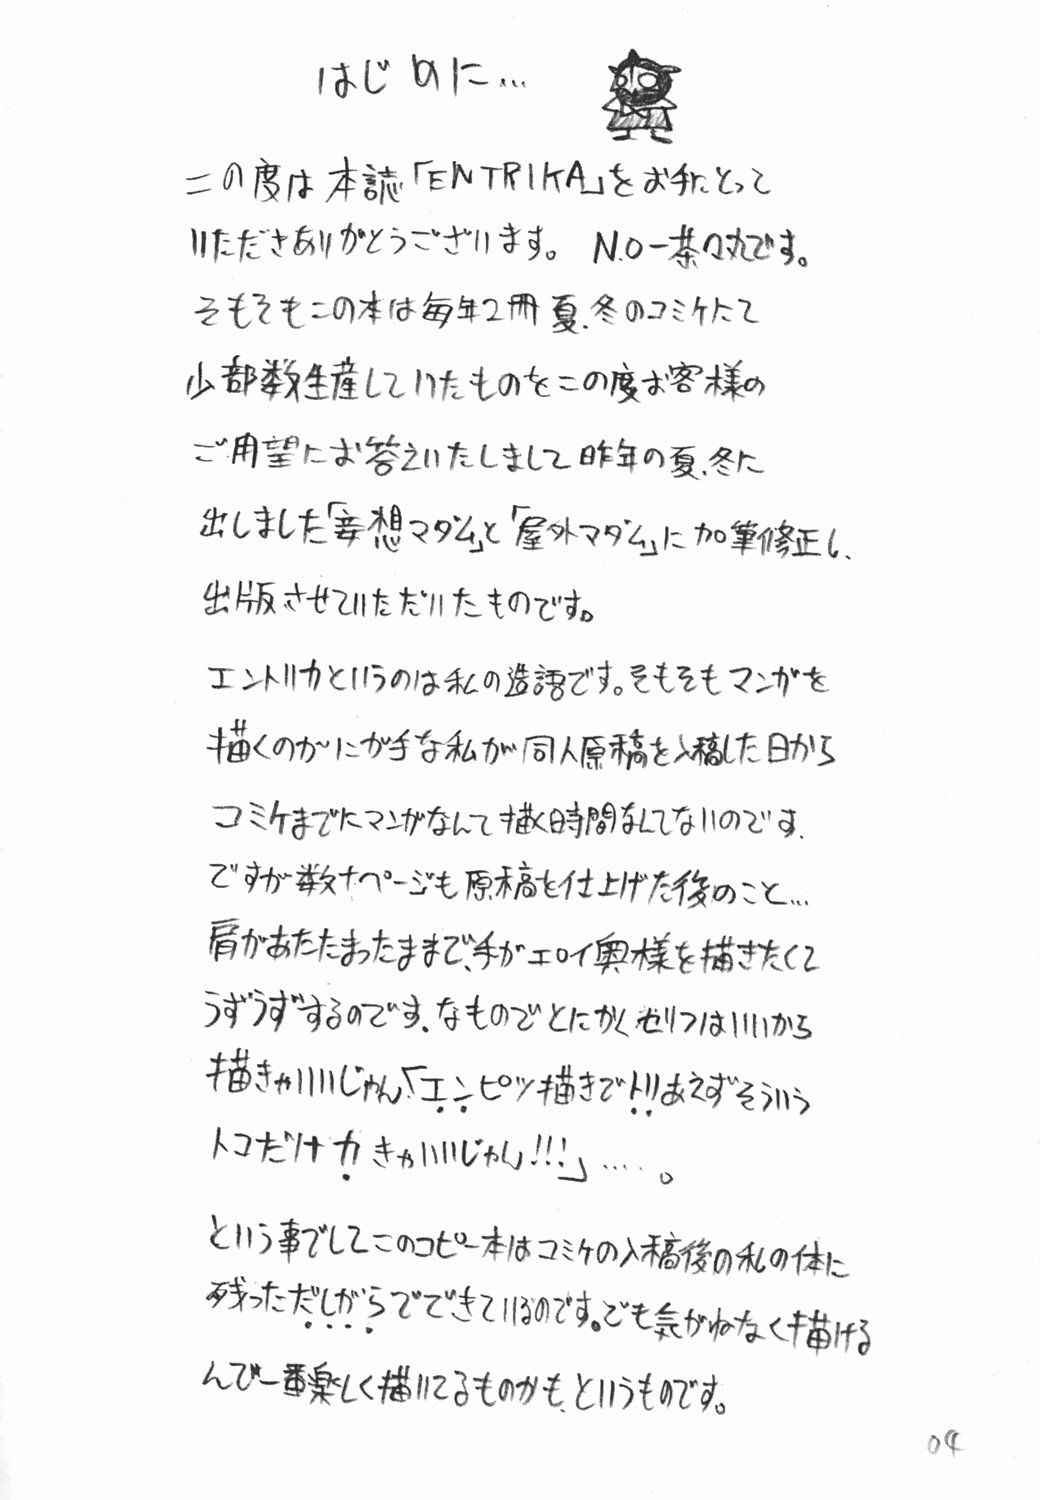 はじめに…
この度は本誌「ENTRIKA」をお手にとって
いただきありがとうございます。 N.O-茶々丸です。
そもそもこの本は毎年2冊夏、冬のコミケにて
少部数生産していたものをこの度お客様の
ご用望にお答えいたしまして昨年の夏、冬に
出しました「妄想マダム」と「屋外マダム」に加筆修正し、
出版させていただいたものです。
エントリカというのは私の造語です。そもそもマンガを
描くのがにが手な私が同人原稿を入稿した日から
コミケまでにマンガなんて描く時間なんてないのです、
ですが数十ページも原稿を仕上げた後のこと…
肩があたたまったままで、手がエロイ奥様を描きたくて
うずうずするのです。なものでとにかくセリフはいいから
描きゃいいじゃん、「エンピツ描きでトリあえずそういう
トコだけカきゃいいじゃん!!!」……。
という事でしてこのコピー本はコミケの入稿後の私の体に
残っただしがらでできているのです。でも気がねなく描ける
んで一番楽しく描いてるものかも、というものです。
04